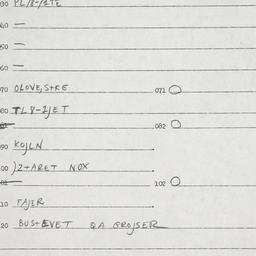 30 PL/8-/1TE
40 —
50 —
60 —
70 OLOVE,S+KE 071
80 TL8-1JET
082
90 KOJLN
00 )Z+ARET NOX
102
10 FAJER
20 BUS+EVET QA GROJSER